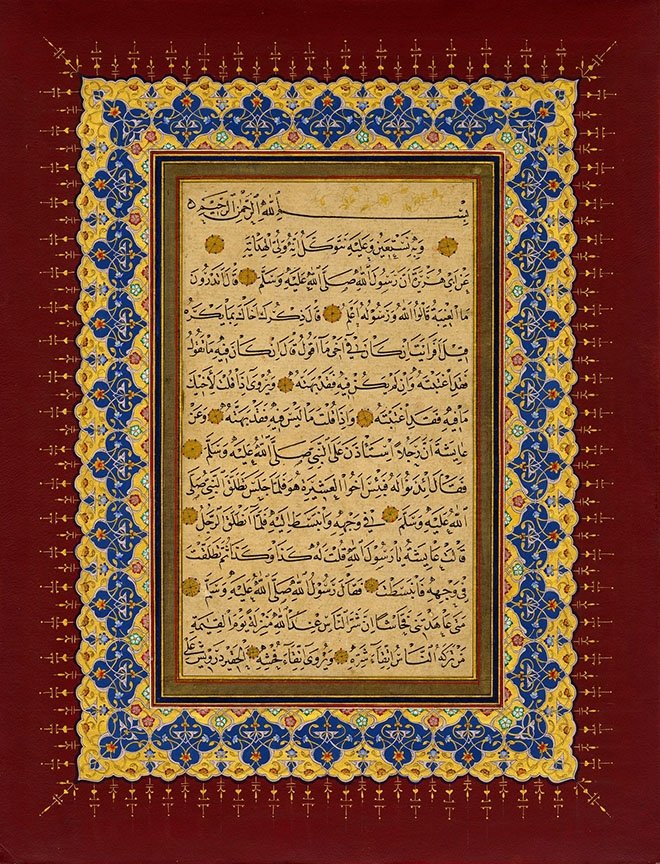 بسم الله الرحمن الرحيم
وبه نستعين وعليه نتوكل
عن ابي هريرة ان رسول الله صلى الله عليه وسلم قال اتدرون
ما الغيبة قالوا الله ورسوله اعلم قال ذكرك اخاك بما يكره
قيل افرايت ان كان في اخي ما اقول قال ان كان فيه ما تقول
فقد اغتبته وان لم يكن فيه فقد بهته ويروى اذا قلت لاخيك
ما فيه فقد اغتبته واذا قلت ما ليس فيه فقد بهته وعن
عايشة ان رجلا استاذن على النبي صلى الله عليه وسلم
فقال ائذنوا له فبئس اخوا العشيرة هو فلما جلس تطلق النبي صلى
الله عليه وسلم في وجهه وانبسط اليه فلما انطلق الرجل
قالت عايشة يا رسول الله قلت له كذا وكذا ثم تطلقت
في وجهه وانبسطت فقال رسول الله صلى الله عليه وسلم
متى عاهدتني فحاشا ان شر الناس عند الله منزلة يوم القيمة
من تركه الناس اتقاء شره ويروى اتقاء فحشه الحقير درويش علي